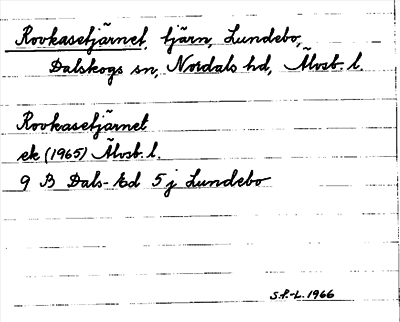 Rovkasetjärnet, tjärn, Lundebo,
Dalskogs sn, Nordals hd, Älvsb. l.
Rovkasetjärnet
ek (1965) Älvsb. l.
9 B Dals-Ed 5 j Lundebo
S.F.-L. 1966